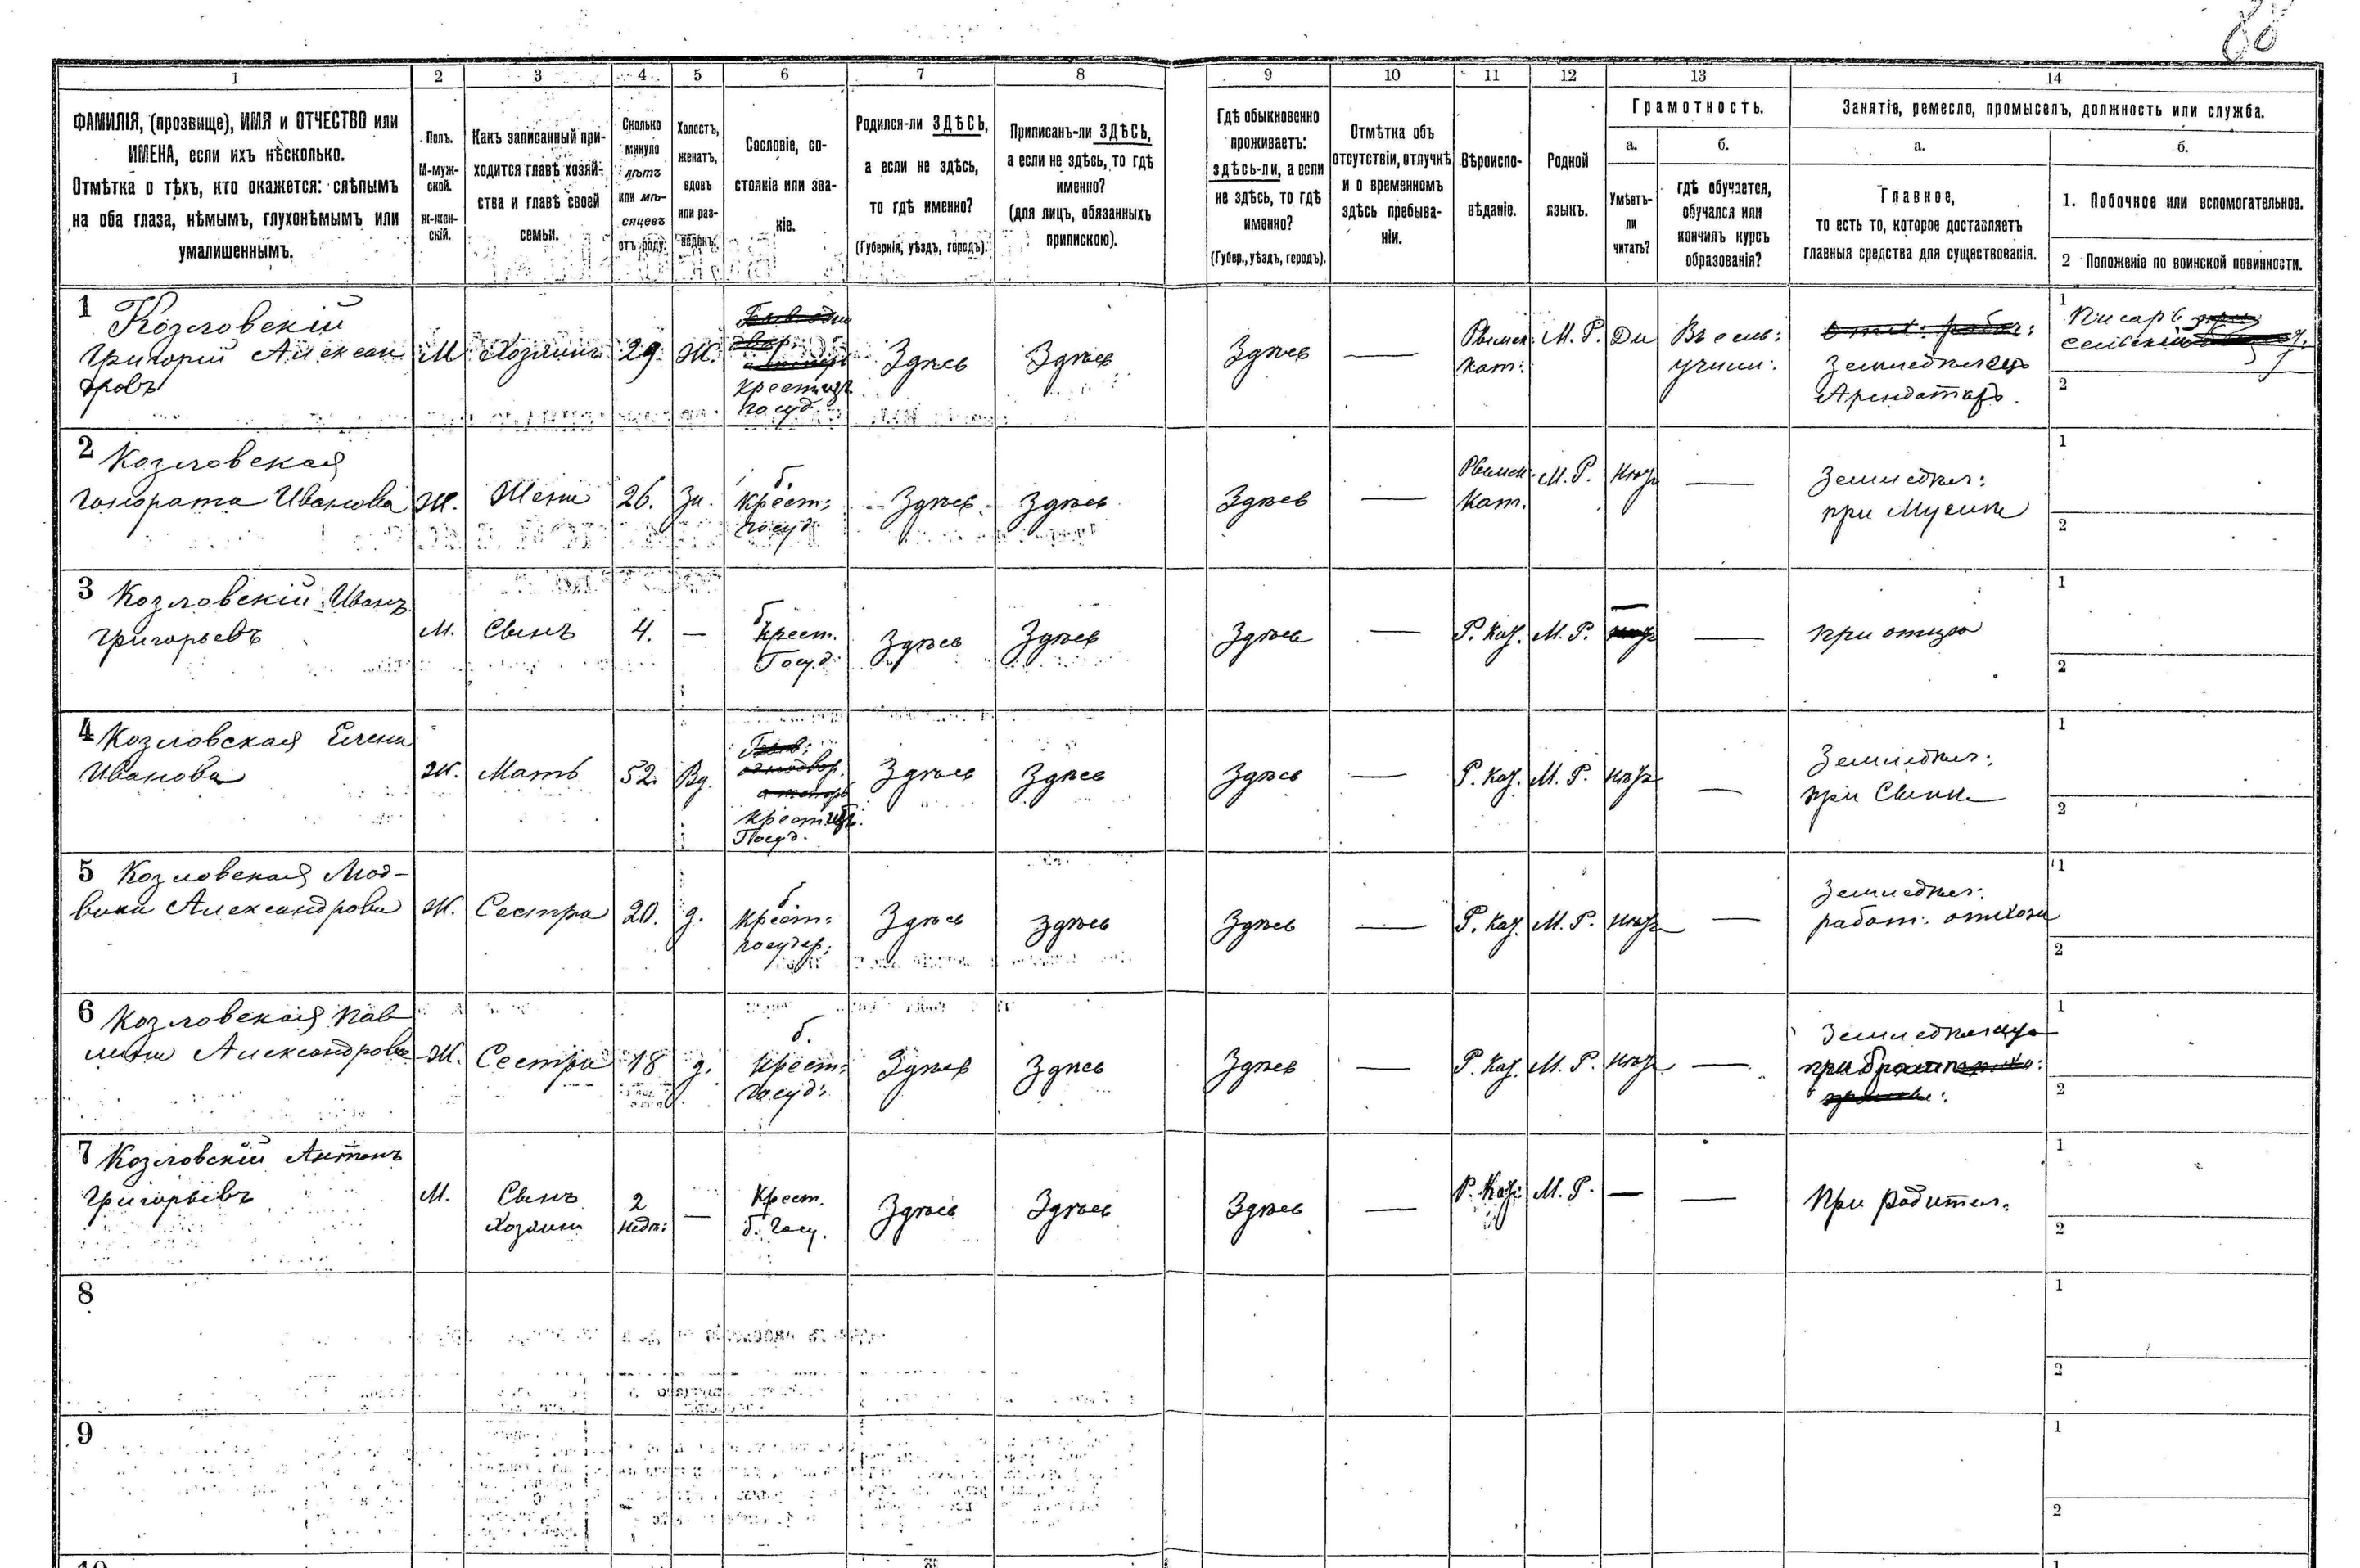 88
1 2 3 4 5 6 7 8 9 10 11 12 13 14
ФАМИЛІЯ, (прозвище), ИМЯ и ОТЧЕСТВО или
ИМЕНА, если ихъ нѣсколько.
Отмѣтка о тѣхъ, кто окажется: слѣпымъ
на оба глаза, нѣмымъ, глухонѣмымъ или
умалишеннымъ.
Полъ.
М-муж-
ской.
ж-жен-
скій.
Какъ записанный при-
ходится главѣ хозяй-
ства и главѣ своей
семьи.
Сколько
минуло
лѣтъ
или мѣ-
сяцевъ
отъ роду.
Холостъ,
женатъ,
вдовъ
или раз-
веденъ.
Сословіе, со-
стояніе или зва-
ніе.
Родился-ли ЗДѢСЬ,
а если не здѣсь,
то гдѣ именно?
(Губернія, уѣздъ, городъ).
Приписанъ-ли ЗДѢСЬ,
а если не здѣсь, то гдѣ
именно?
(для лицъ, обязанныхъ
припискою).
Гдѣ обыкновенно
проживаетъ:
здѣсь-ли, а если
не здѣсь, то гдѣ
именно?
(Губер., уѣздъ, городъ).
Отмѣтка объ
отсутствіи, отлучкѣ
и о временномъ
здѣсь пребыва-
ніи.
Вѣроиспо-
вѣданіе.
Родной
языкъ.
Грамотность.
а.
Умѣетъ-
ли
читать?
б.
гдѣ обучается,
обучался или
кончилъ курсъ
образованія?
Занятіе, ремесло, промыселъ, должность или служба.
а.
Главное,
то есть то, которое доставляетъ
главныя средства для существованія.
б.
1. Побочное или вспомогательное.
2 Положеніе по воинской повинности.
1 Козловскій
Григорій Алексан
дровъ
М
Хозяинъ
29.
Ж.
крест. изъ
госуд.
Здѣсь
Здѣсь
Здѣсь
—
Римск.
Кат:
М. Р.
Да
Въ сель:
учили:
Земледѣлецъ
Арендаторъ.
1
Писарь
сельскій
2
2 Козловская
Гонората Иванова
Ж.
Жена
26.
За.
б.
Крест:
госуд:
Здѣсь
Здѣсь
Здѣсь
—
Римск.
Кат.
М. Р.
нѣтъ
—
Земледѣл:
при Мужѣ
1
2
3 Козловскій Иванъ
Григорьевъ
М.
Сынъ
4.
—
б.
Крест.
Госуд.
Здѣсь
Здѣсь
Здѣсь
—
Р. Кат.
М. Р.
—
—
при отцѣ
1
2
4 Козловская Елена
Иванова
Ж.
Мать
52.
Вд.
Крест. изъ
Госуд.
Здѣсь
Здѣсь
Здѣсь
—
Р. Кат.
М. Р.
нѣтъ
—
Земледѣл:
при Сынѣ
1
2
5 Козловская Мод-
вина Александрова
Ж.
Сестра
20.
д.
б.
Крест:
государ:
Здѣсь
Здѣсь
Здѣсь
—
Р. Кат.
М. Р.
нѣтъ
—
Земледѣл:
работ:
1
2
6 Козловская Пав
лина Александрова
Ж.
Сестра
18
д.
б.
Крест:
госуд:
Здѣсь
Здѣсь
Здѣсь
—
Р. Кат.
М. Р.
нѣтъ
—
при братѣ
1
2
7 Козловскій Антонъ
Григорьевъ
М.
Сынъ
Хозяина
2
недѣ:
—
Крест.
б. Госу.
Здѣсь
Здѣсь
Здѣсь
—
Р. Кат:
М. Р.
—
—
При родител.
1
2
8
1
2
9
1
2
10
1